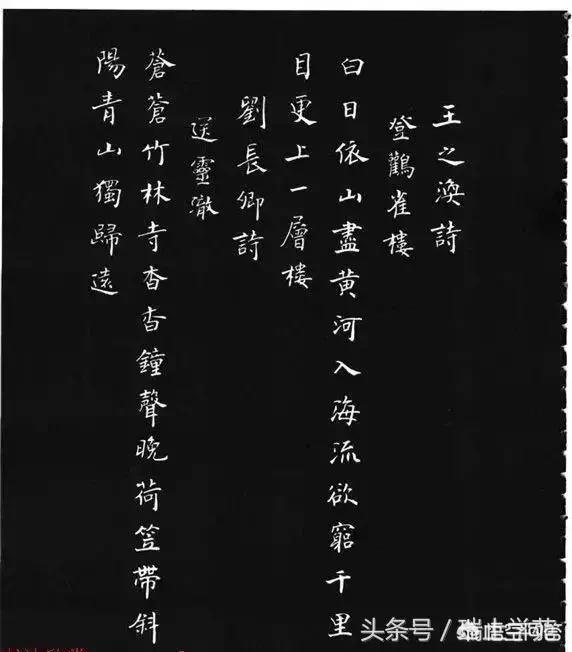 王之渙詩
登鸛雀樓
白日依山盡黄河入海流欲窮千里
目更上一層樓
劉長卿詩
送靈澈
蒼蒼竹林寺杳杳鐘聲晚荷笠帶斜
陽青山獨歸遠
头条号 /